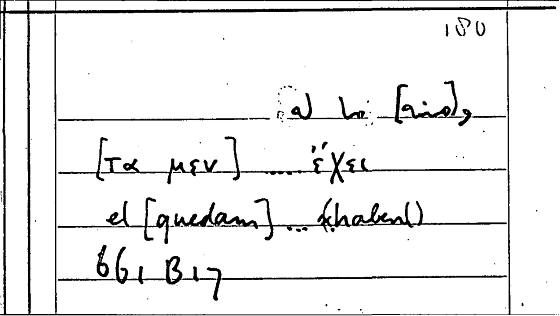 180
a)
[τα μεν] .... ἔχει
et [quedam] ... (habent)
661 B 17